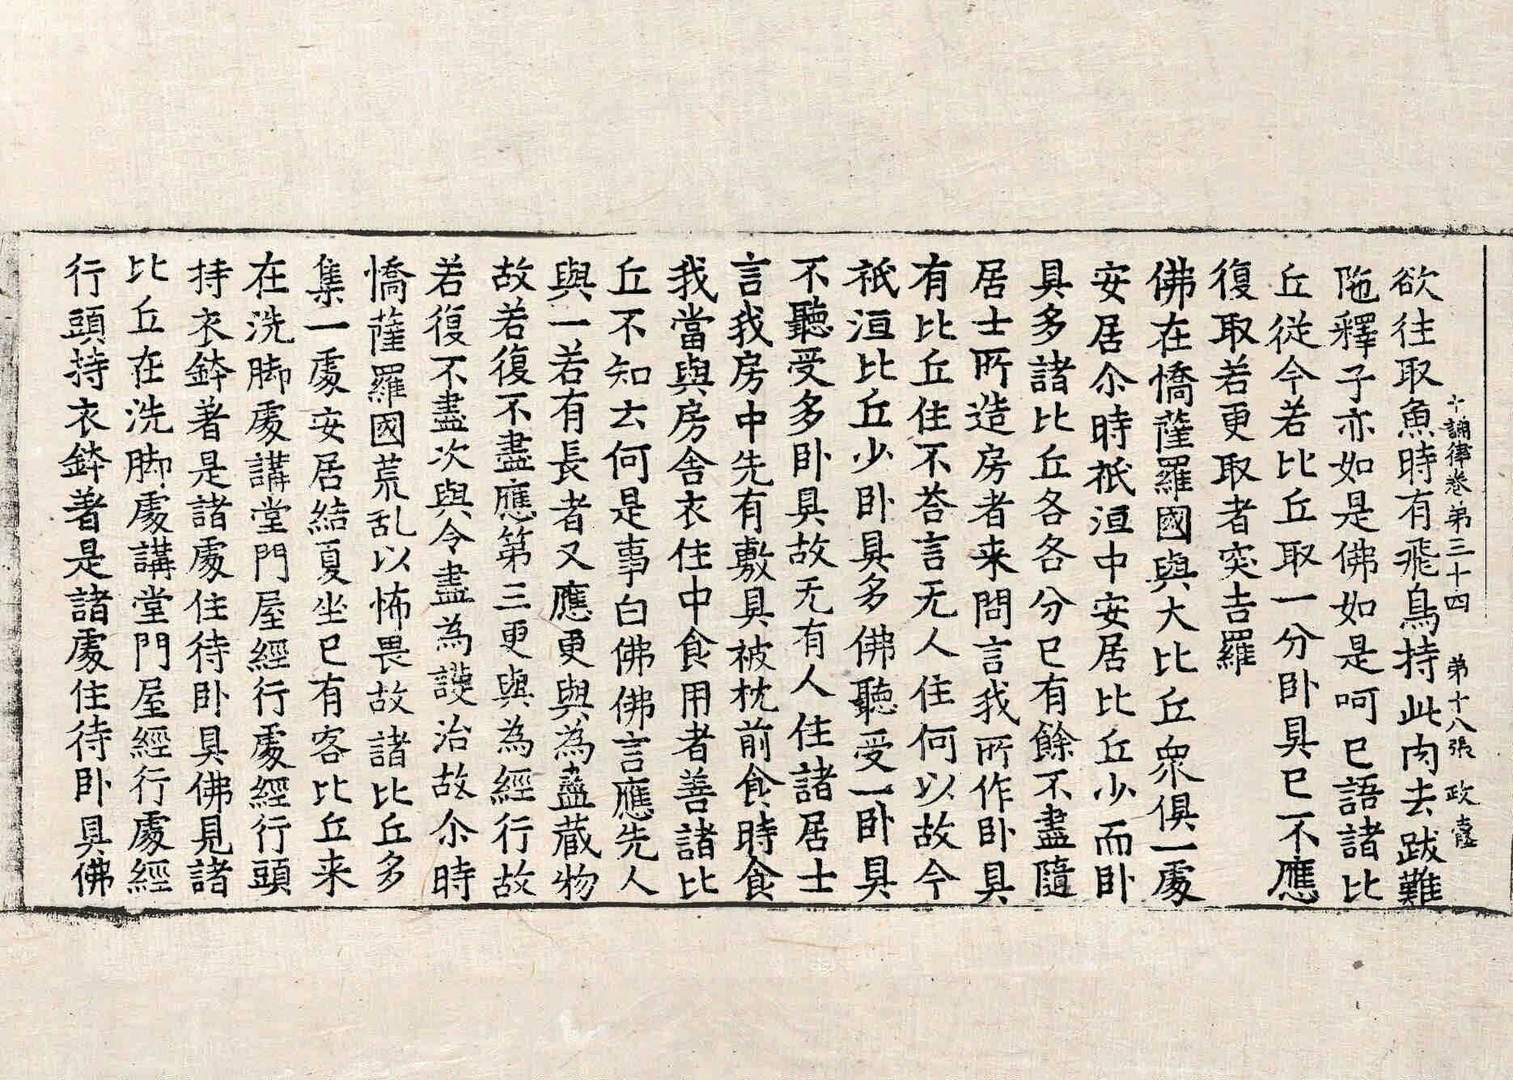 十誦律卷第三十四 第十八張 政
欲往取魚時有飛鳥持此肉去跋難
陁釋子亦如是佛如是呵已語諸比
丘從今若比丘取一分卧具已不應
復取若更取者突吉羅
佛在憍薩羅國與大比丘衆俱一處
安居尒時祇洹中安居比丘少而卧
具多諸比丘各各分已有餘不盡隨
居士所造房者来問言我所作卧具
有比丘住不荅言无人住何以故今
祇洹比丘少卧具多佛聽受一卧具
不聽受多卧具故无有人住諸居士
言我房中先有敷具被枕前食時食
我當與房舍衣住中食用者善諸比
丘不知云何是事白佛佛言應先人
與一若有長者又應更與為蓋藏物
故若復不盡應第三更與為經行故
若復不盡次與令盡為護治故尒時
憍薩羅國荒乱以怖畏故諸比丘多
集一處安居結夏坐已有客比丘来
在洗脚處講堂門屋經行處經行頭
持衣鉢著是諸處住待卧具佛見諸
比丘在洗脚處講堂門屋經行處經
行頭持衣鉢著是諸處住待卧具佛